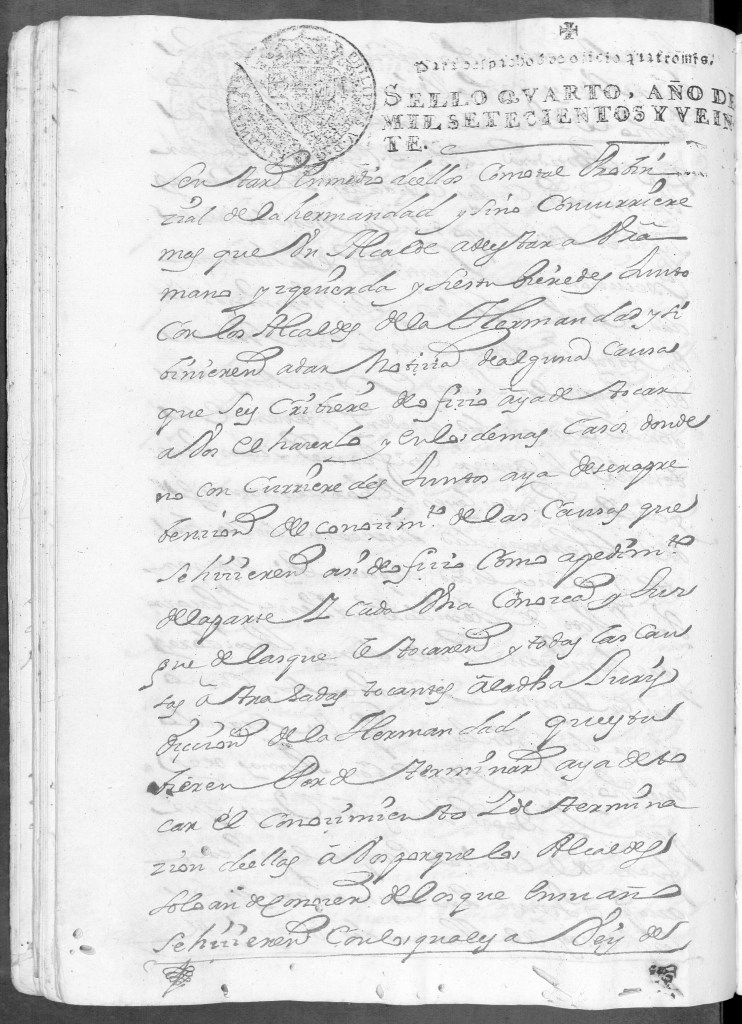 ✠
Para despachos de oficio quatro mrs.
SELLO QVARTO, AÑO DE
MIL SETECIENTOS Y VEIN
TE.
sentar en medio de ellos Como tal Probin
zial de la hermandad y sino Concurriere
mas que Un Alcalde a de estar a Vra
mano yzquierda y si estubieredes Junto
Con los Alcaldes de la Hermandad y si
binieren a dar Notizia de alguna Causa
que se escribiere de ofizio aya de tocar
a Vos el hazerlo y en los demas Casos donde
no con Curriere des Juntos aya de ser a pre
benzion del conozim.to de las Causas que
se hizieren asi de ofizio como a pedim.to
de la parte Y cada Uno Conozca y Juz
gue de las que le tocaren y todas las Cau
sas atrasadas tocantes a la dha Juris
dizion de la Hermandad que estu
bieren Por de terminar aya de to
car el Conozimiento Y de termina
zion de ellas a Vos porque los Alcaldes
solo an de Conozer de los que en su año
se hizieren Con los quales a Veis de